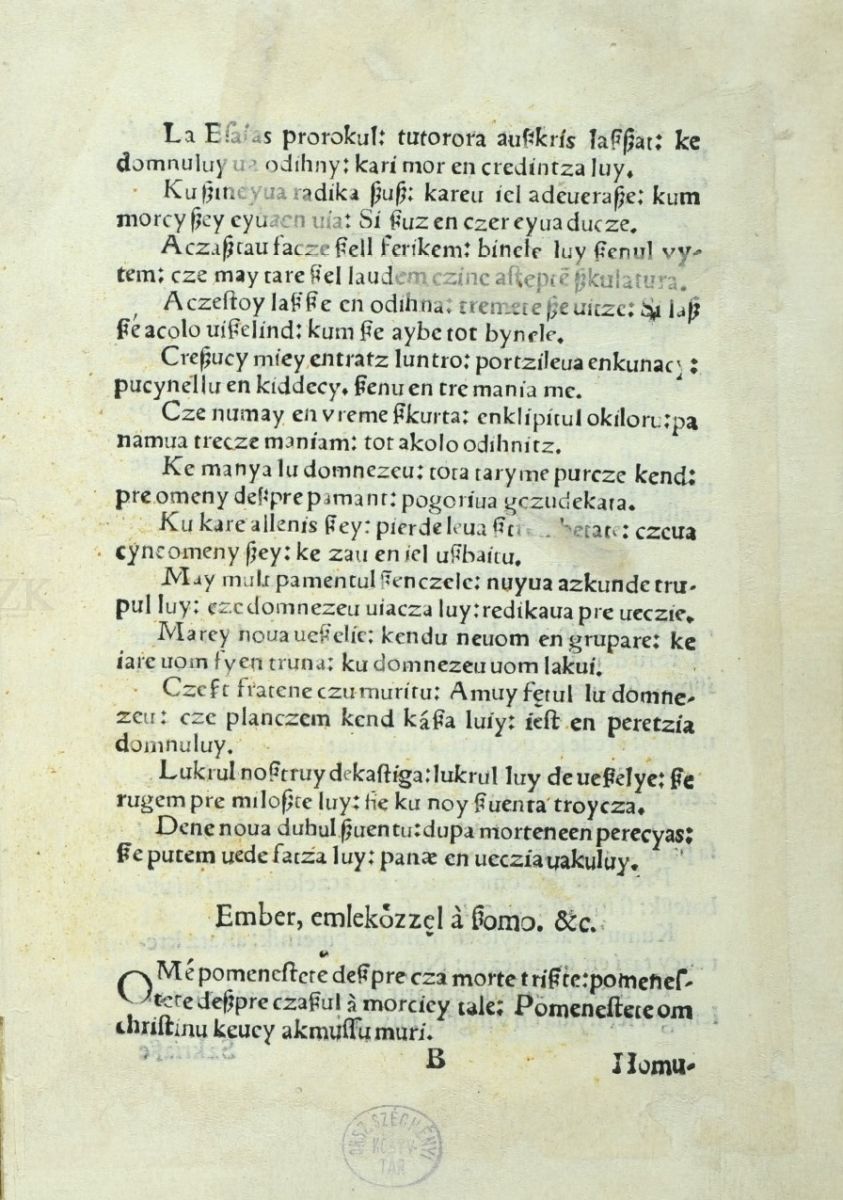 La Esaias prorokul: tutorora auskris lasßat: ke
domnuluy ua odihny: kari mor en credintza luy.
Ku ßineyua radika ßuß: kareu iel adeueraße: kum
morcy ßey eyuaen uia: Si ſuz en czer eyua ducze.
Aczaßtau facze ſell ferikem: binele luy ſenul vy-
tem: cze may tare ſel laudem czine aſteptē ſkulatura.
Aczeſtoy laſſe en odihna: tremete ße uitze: Si laß
ſe acolo uiſelind: kum ſe aybe tot bynele.
Creßucy miey entratz luntro: portzileua enkunacy:
pucynellu en kiddecy. ſenu en tre mania me.
Cze numay en vreme ſkurta: enklipitul okiloru: pa
namua trecze maniam: tot akolo odihnitz.
Ke manya lu domnezeu: tota taryme purcze kend:
pre omeny deſpre pamant: pogoriua gczudekata.
Ku kare allenis ſey: pierdeleua betate: czeua
cyncomeny ßey: ke zau en iel uſbaitu.
May mult pamentul ſenczele: nuyua azkunde tru-
pul luy: cze domnezeu uiacza luy: redikaua pre ueczie.
Marey noua ueſelie: kendu neuom en grupare: ke
iare uom fy en truna: ku domnezeu uom lakui.
Czeſt fratene czu muritu: Amuy fętul lu domne-
zeu: cze planczem kend káſa luiy: ieſt en peretzia
domnuluy.
Lukrul noſtruy dekaſtiga: lukrul luy de ueſelye: ſe
rugem pre miloßte luy: fie ku noy ſuenta troycza.
Dene noua duhul ßuentu: dupa morteneen perecyas:
ſe putem uede fatza luy: panæ en ueczia uakuluy.
Ember, emlekőzzęl à ſomo. &c.
OMé pomeneſtere deſpre cza morte triſte: pomeneſ-
tere deßpre czaſul à morciey tale: Pomeneſtere om
chriſtinu keucy akmuſſu muri.
B
Homu-
ORSZ. SZÉCHÉNYI
KÖNYV-
TÁR
ZK